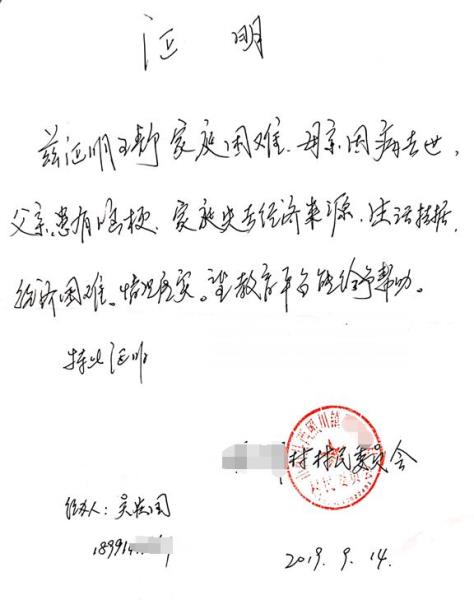 证明
兹证明王 家庭困难、母亲因病去世，
父亲患有脑梗、家庭失去经济来源、生活拮据，
经济困难。情况属实。望教育平台能给予帮助。
特此证明
村村民委员会
经办人：吴国
18991
2019.9.14.